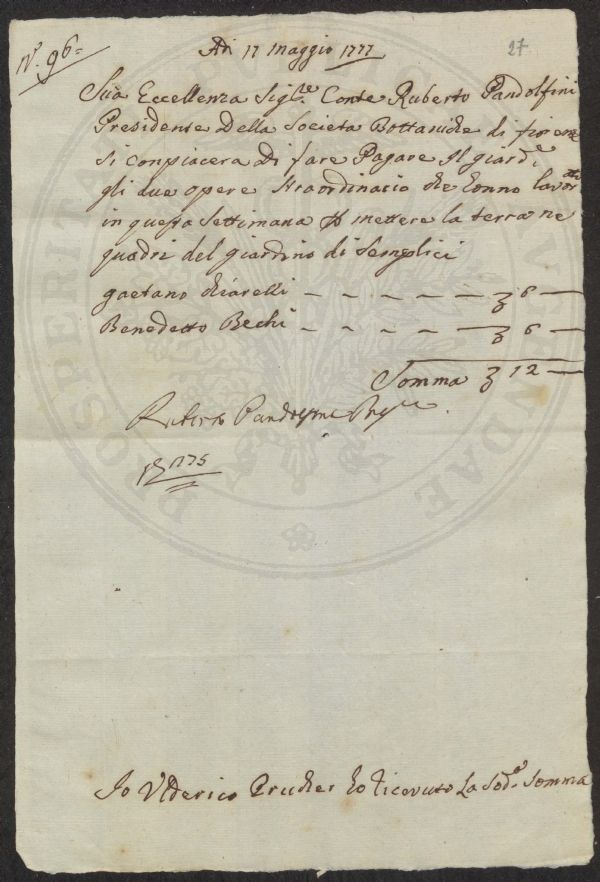 N.° 96=
Adi 17 Maggio 1777
27
Sua Eccellenza Sig.re Conte Ruberto Pandolfini
Presidente Della Societa Bottaniche di fiorenze
si conpiacera Di fare Pagare Il giard.e
gli due opere straordinario che Conno lavor.tto
in questa settimana p mettere la terra ne
quadri del giardino di Semplici
gaetano chiarelli – – – – – – 3 6 —
Benedetto Bechi – – – – – – 3 6 —
Somma 3 12 —
Ruberto Pandolfini Pres.te
1775
Io Vlderico Prucher ho ricevuto La Sod.a Somma
PROSPERITATI PUBLICAE AUGENDAE